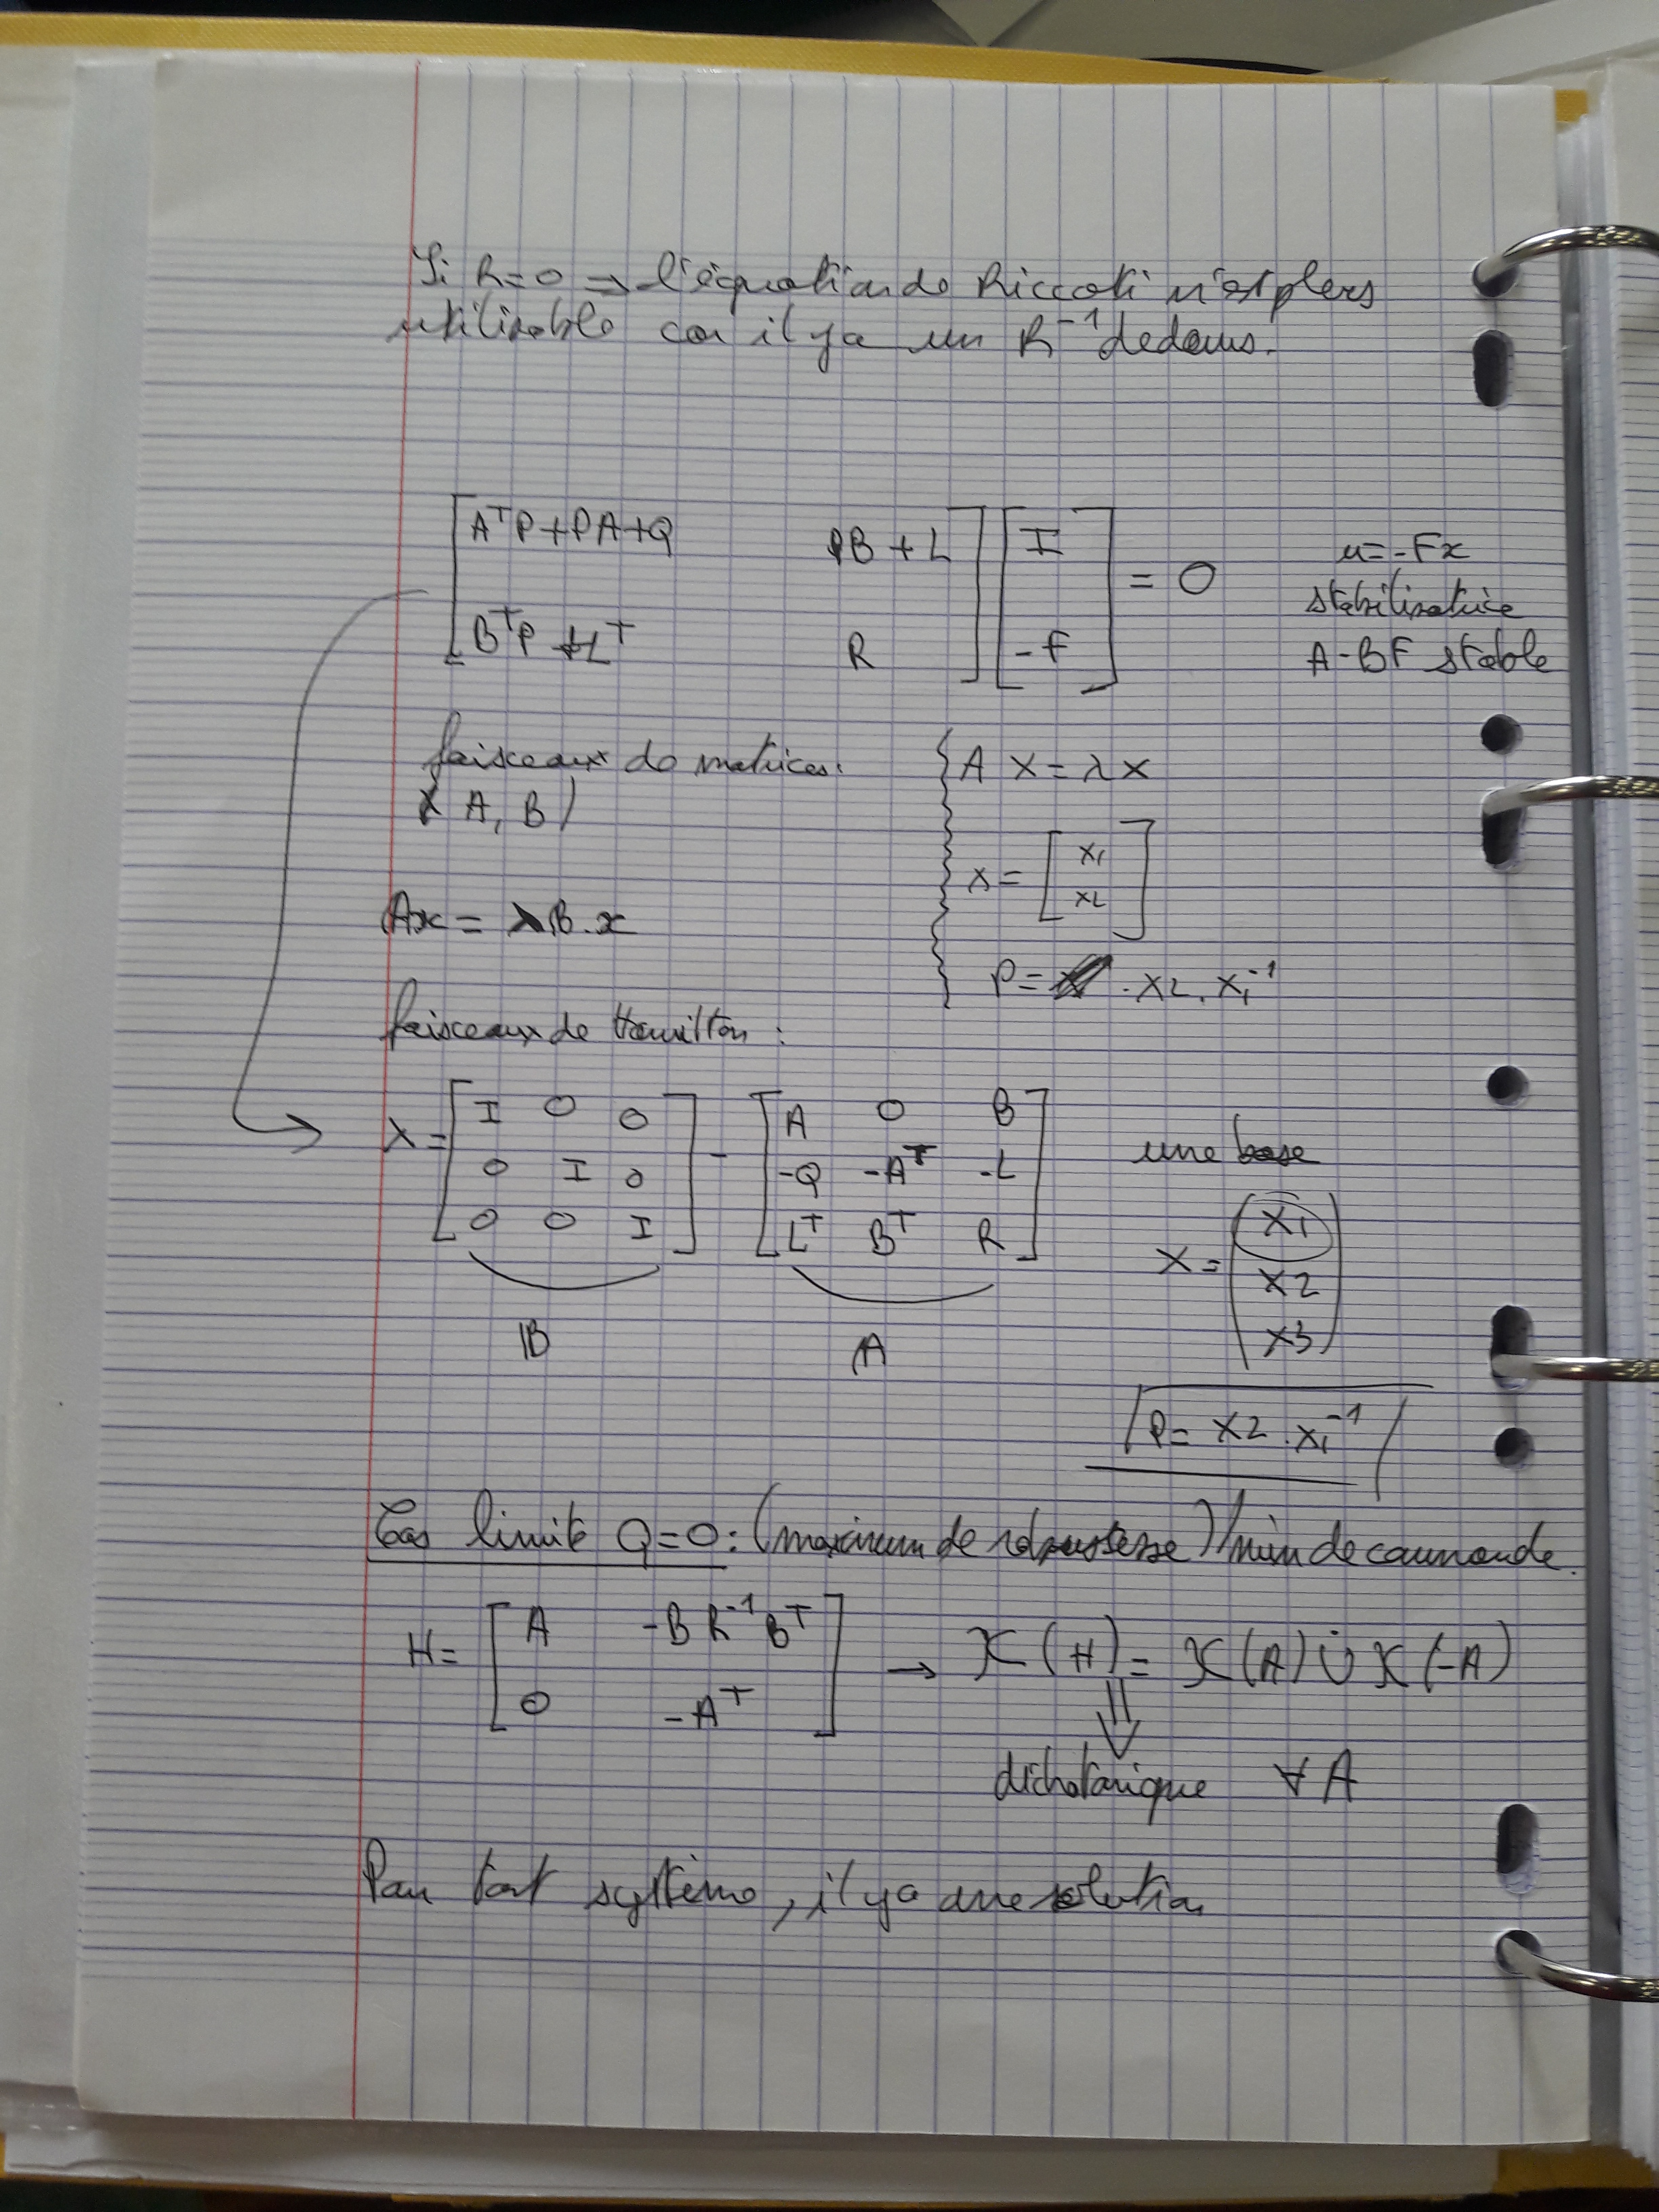 Si R=0 ⇒ l'équation de Riccati n'est plus
utilisable car il y a un R⁻¹ dedans.
[ AᵀP+PA+Q PB+L ] [ I ] = 0 u=-Fx
stabilisatrice
[ BᵀP+Lᵀ R ] [ -F ] A-BF stable
faisceaux de matrices: A X = λ X
( A, B )
X = [ X1
X2 ]
Ax = λ B.x
P= . X2 . X1⁻¹
faisceaux de Hamilton :
λ = [ I 0 0 ] - [ A 0 B ]
[ 0 I 0 ] [ -Q -Aᵀ -L ] une base
[ 0 0 I ] [ Lᵀ Bᵀ R ]
X = ( X1
X2
X3 )
B A
P= X2 . X1⁻¹
Cas limite Q=0: (maximum de robustesse) / min de commande.
H= [ A -BR⁻¹Bᵀ ] → K (H) = K (A) ∪ K (-A)
[ 0 -Aᵀ ] ⇓
dichotomique ∀ A
Pour tout système, il y a une solution